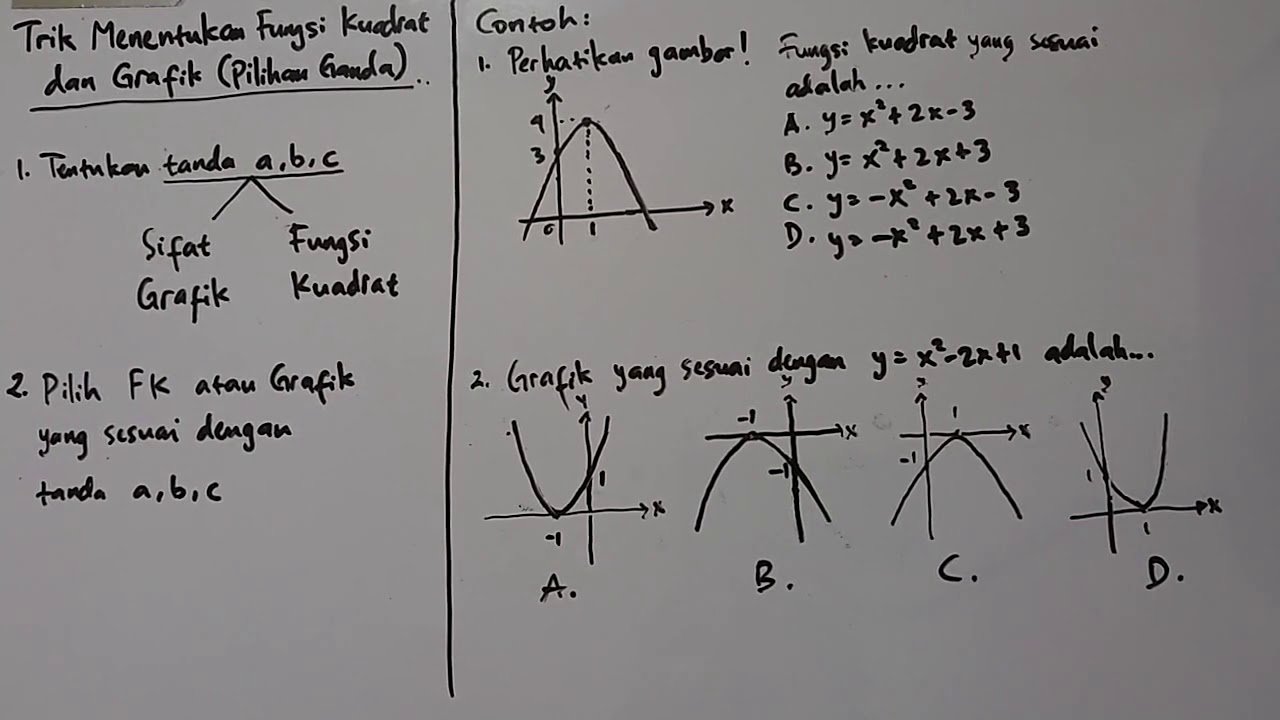 Trik Menentukan Fungsi Kuadrat
dan Grafik (Pilihan Ganda)..
1. Tentukan tanda a,b,c
Sifat
Grafik
Fungsi
Kuadrat
2. Pilih FK atau Grafik
yang sesuai dengan
tanda a,b,c
Contoh:
1. Perhatikan gambar!
y
4
3
0
1
x
Fungsi kuadrat yang sesuai
adalah...
A. y = x² + 2x - 3
B. y = x² + 2x + 3
C. y = -x² + 2x - 3
D. y = -x² + 2x + 3
2. Grafik yang sesuai dengan y = x² - 2x + 1 adalah...
y
1
x
-1
A.
y
-1
x
-1
B.
y
1
x
-1
C.
y
1
x
1
D.